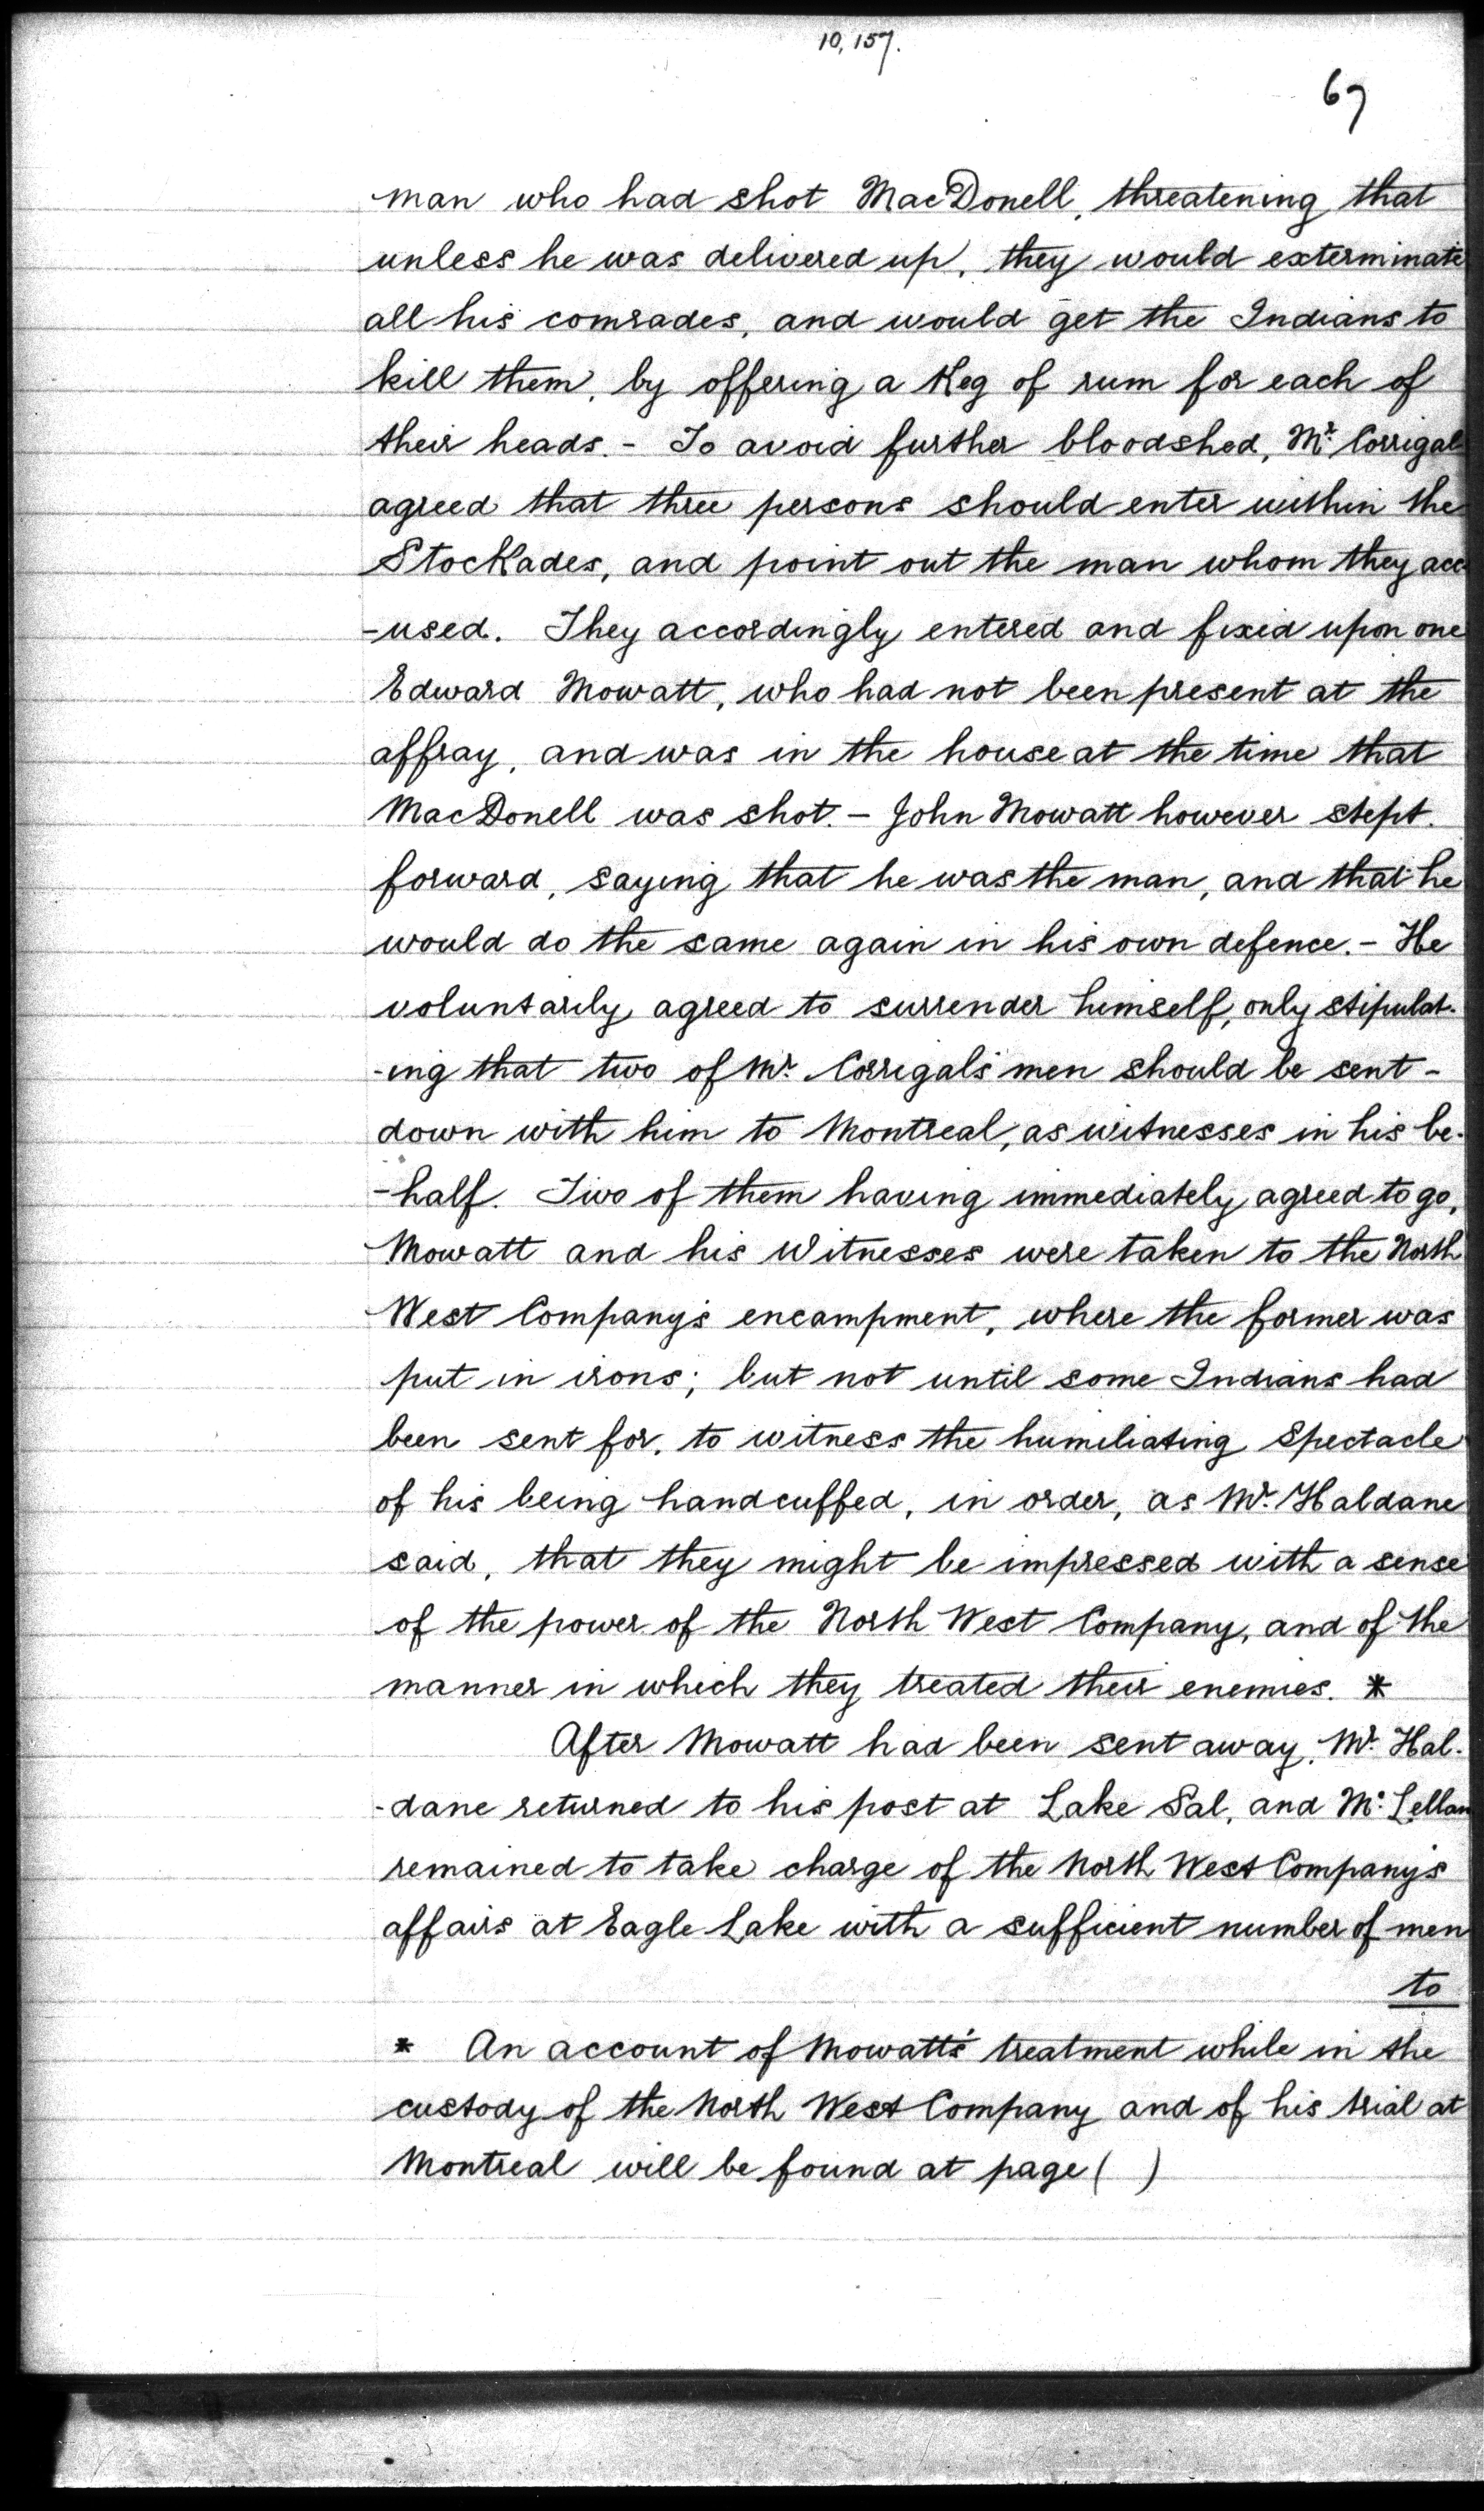 10,157.
67
man who had shot MacDonell, threatening that
unless he was delivered up, they would exterminate
all his comrades, and would get the Indians to
kill them, by offering a Keg of rum for each of
their heads. - To avoid further bloodshed, Mr. Corrigal
agreed that three persons should enter within the
Stockades, and point out the man whom they acc-
-used. They accordingly entered and fixed upon one
Edward Mowatt, who had not been present at the
affray, and was in the house at the time that
MacDonell was shot. - John Mowatt however stept
forward, saying that he was the man, and that he
would do the same again in his own defence. - He
voluntarily agreed to surrender himself, only stipulat-
-ing that two of Mr. Corrigal's men should be sent -
down with him to Montreal, as witnesses in his be-
-half. Two of them having immediately agreed to go,
Mowatt and his Witnesses were taken to the North
West Company's encampment, where the former was
put in irons; but not until some Indians had
been sent for, to witness the humiliating Spectacle
of his being handcuffed, in order, as Mr. Haldane
said, that they might be impressed with a sense
of the power of the North West Company, and of the
manner in which they treated their enemies. *
After Mowatt had been sent away, Mr. Hal-
-dane returned to his post at Lake Sal, and Mc. Lellan
remained to take charge of the North West Company's
affairs at Eagle Lake with a sufficient number of men
to
* An account of Mowatt's treatment while in the
custody of the North West Company and of his trial at
Montreal will be found at page ( )